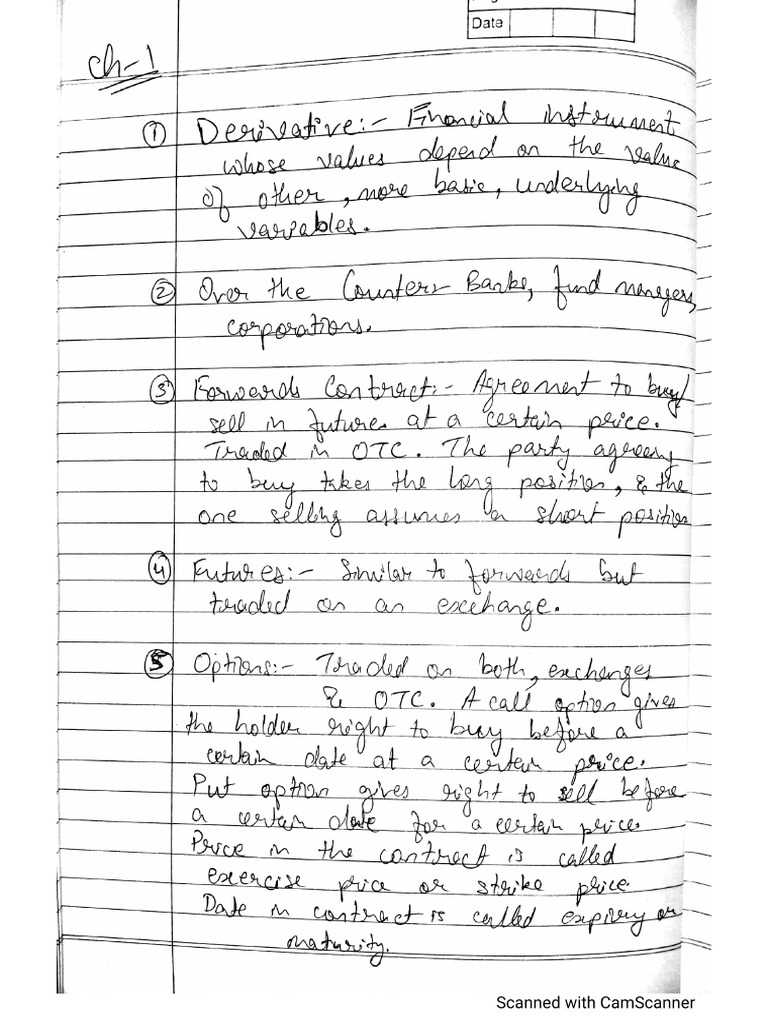 Date
Ch-1
① Derivative:- Financial instrument
whose values depend on the value
of other, more basic, underlying
variables.
② Over the Counter:- Banks, fund managers,
corporations.
③ Forwards Contract:- Agreement to buy/
sell in future at a certain price.
Traded in OTC. The party agreeing
to buy takes the long position, & the
one selling assumes a short position
④ Futures:- Similar to forwards but
traded on an exchange.
⑤ Options:- Traded on both, exchanges
& OTC. A call option gives
the holder right to buy before a
certain date at a certain price.
Put option gives right to sell before
a certain date for a certain price.
Price in the contract is called
exercise price or strike price.
Date in contract is called expiry or
maturity.
Scanned with CamScanner